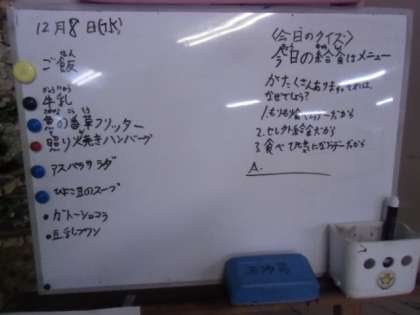 12月8日(水)
はん
ご飯
ぎゅうにゅう
牛乳
魚の香草フリッター
照り焼きハンバーグ
アスパラサラダ
ひよこ豆のスープ
ガトーショコラ
豆乳プリン
〈今日のクイズ〉
今日の給食はメニュー
がたくさんありますがそれは
なぜでしょう?
1.
2.セレクト給食だから
3.食べて元気になるデーだから
A.